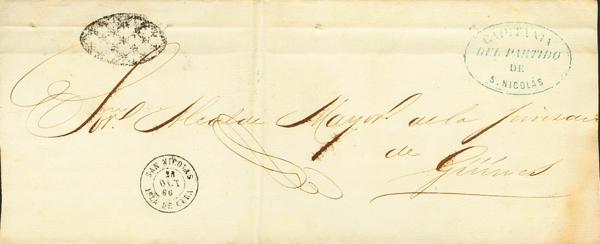 CAPITANIA
DEL PARTIDO
DE
S. NICOLÁS
Sor. Alcalde Mayor. de la
de Güines
SAN NICOLAS
OCT
66
ISLA DE CUBA